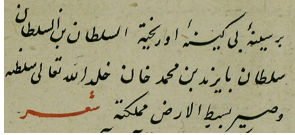 بر سینهٔ بی کینهٔ اورنجیة السلطان بن السلطان
سلطان بایزید بن محمد خان خلد الله تعالی سلطنته
وصیر بسیط الارض مملکته شعر